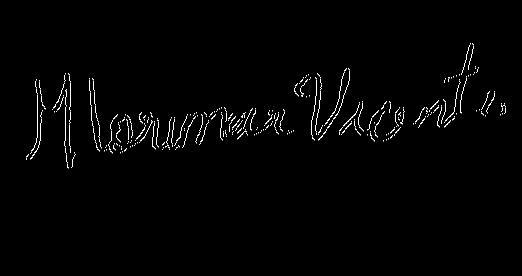 Morumar Vicente.